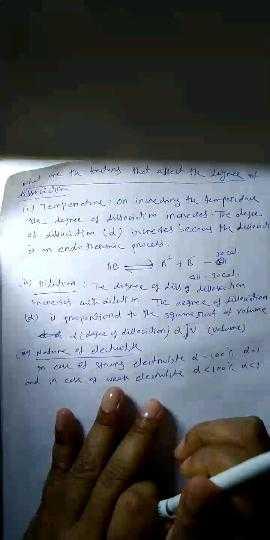 what are the factors that affect the degree of
dissociation
(i) Temperature: On increasing the temperature
the degree of dissociation increases. The degree
of dissociation (α) increases because the dissociation
is an endothermic process.
AB ⇌ A⁺ + B⁻
(ii) Dilution: The degree of dissociation
increases with dilution. The degree of dissociation
(α) is proportional to the square root of volume
α (degree of dissociation) α √v (volume)
(iii) Nature of electrolyte
in case of strong electrolyte α = 100% α=1
and in case of weak electrolyte α<100% α<1